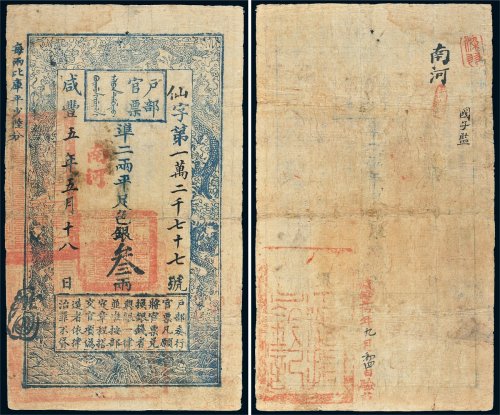 户部
官票
仙字第一萬二千七十七號
準二兩平足色銀叁兩
南河
咸豐五年五月十八日
每兩比庫平少陸分
户部奏行
官票凡願
將官票兑
換銀錢者
與銀一律
並准按部
定章程搭
交官項偽
造者依律
治罪不貸
南河
國子監
年九月初四日